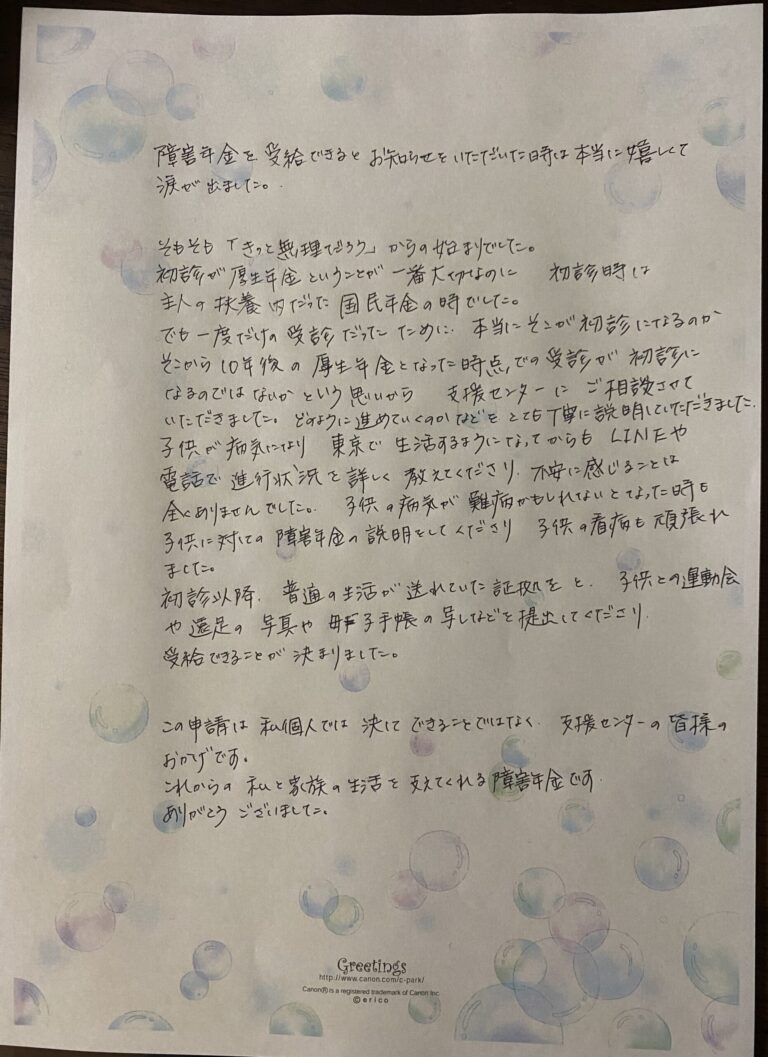 障害年金を受給できるとお知らせをいただいた時は本当に嬉しくて
涙が出ました。
そもそも「きっと無理だろう」からの始まりでした。
初診が厚生年金ということが一番大切なのに 初診時は
主人の扶養内だった国民年金の時でした。
でも一度だけの受診だったために、本当にそこが初診になるのか
そこから10年後の厚生年金となった時点での受診が初診に
なるのではないかという思いから 支援センターにご相談させて
いただきました。どのように進めていくのかなどをとても丁寧に説明していただきました。
子供が病気になり 東京で生活するようになってからもLINEや
電話で進行状況を詳しく教えてくださり、不安に感じることは
全くありませんでした。子供の病気が難病かもしれないとなった時も
子供に対しての障害年金の説明をしてくださり 子供の看病も頑張れ
ました。
初診以降、普通の生活が送れていた証拠をと、子供との運動会
や遠足の写真や母子手帳の写しなどを提出してくださり、
受給できることが決まりました。
この申請は私個人では決してできることではなく、支援センターの皆様の
おかげです。
これからの私と家族の生活を支えてくれる障害年金です
ありがとうございました。
Greetings
http://www.canon.com/c-park/
Canon® is a registered trademark of Canon Inc.
© erico